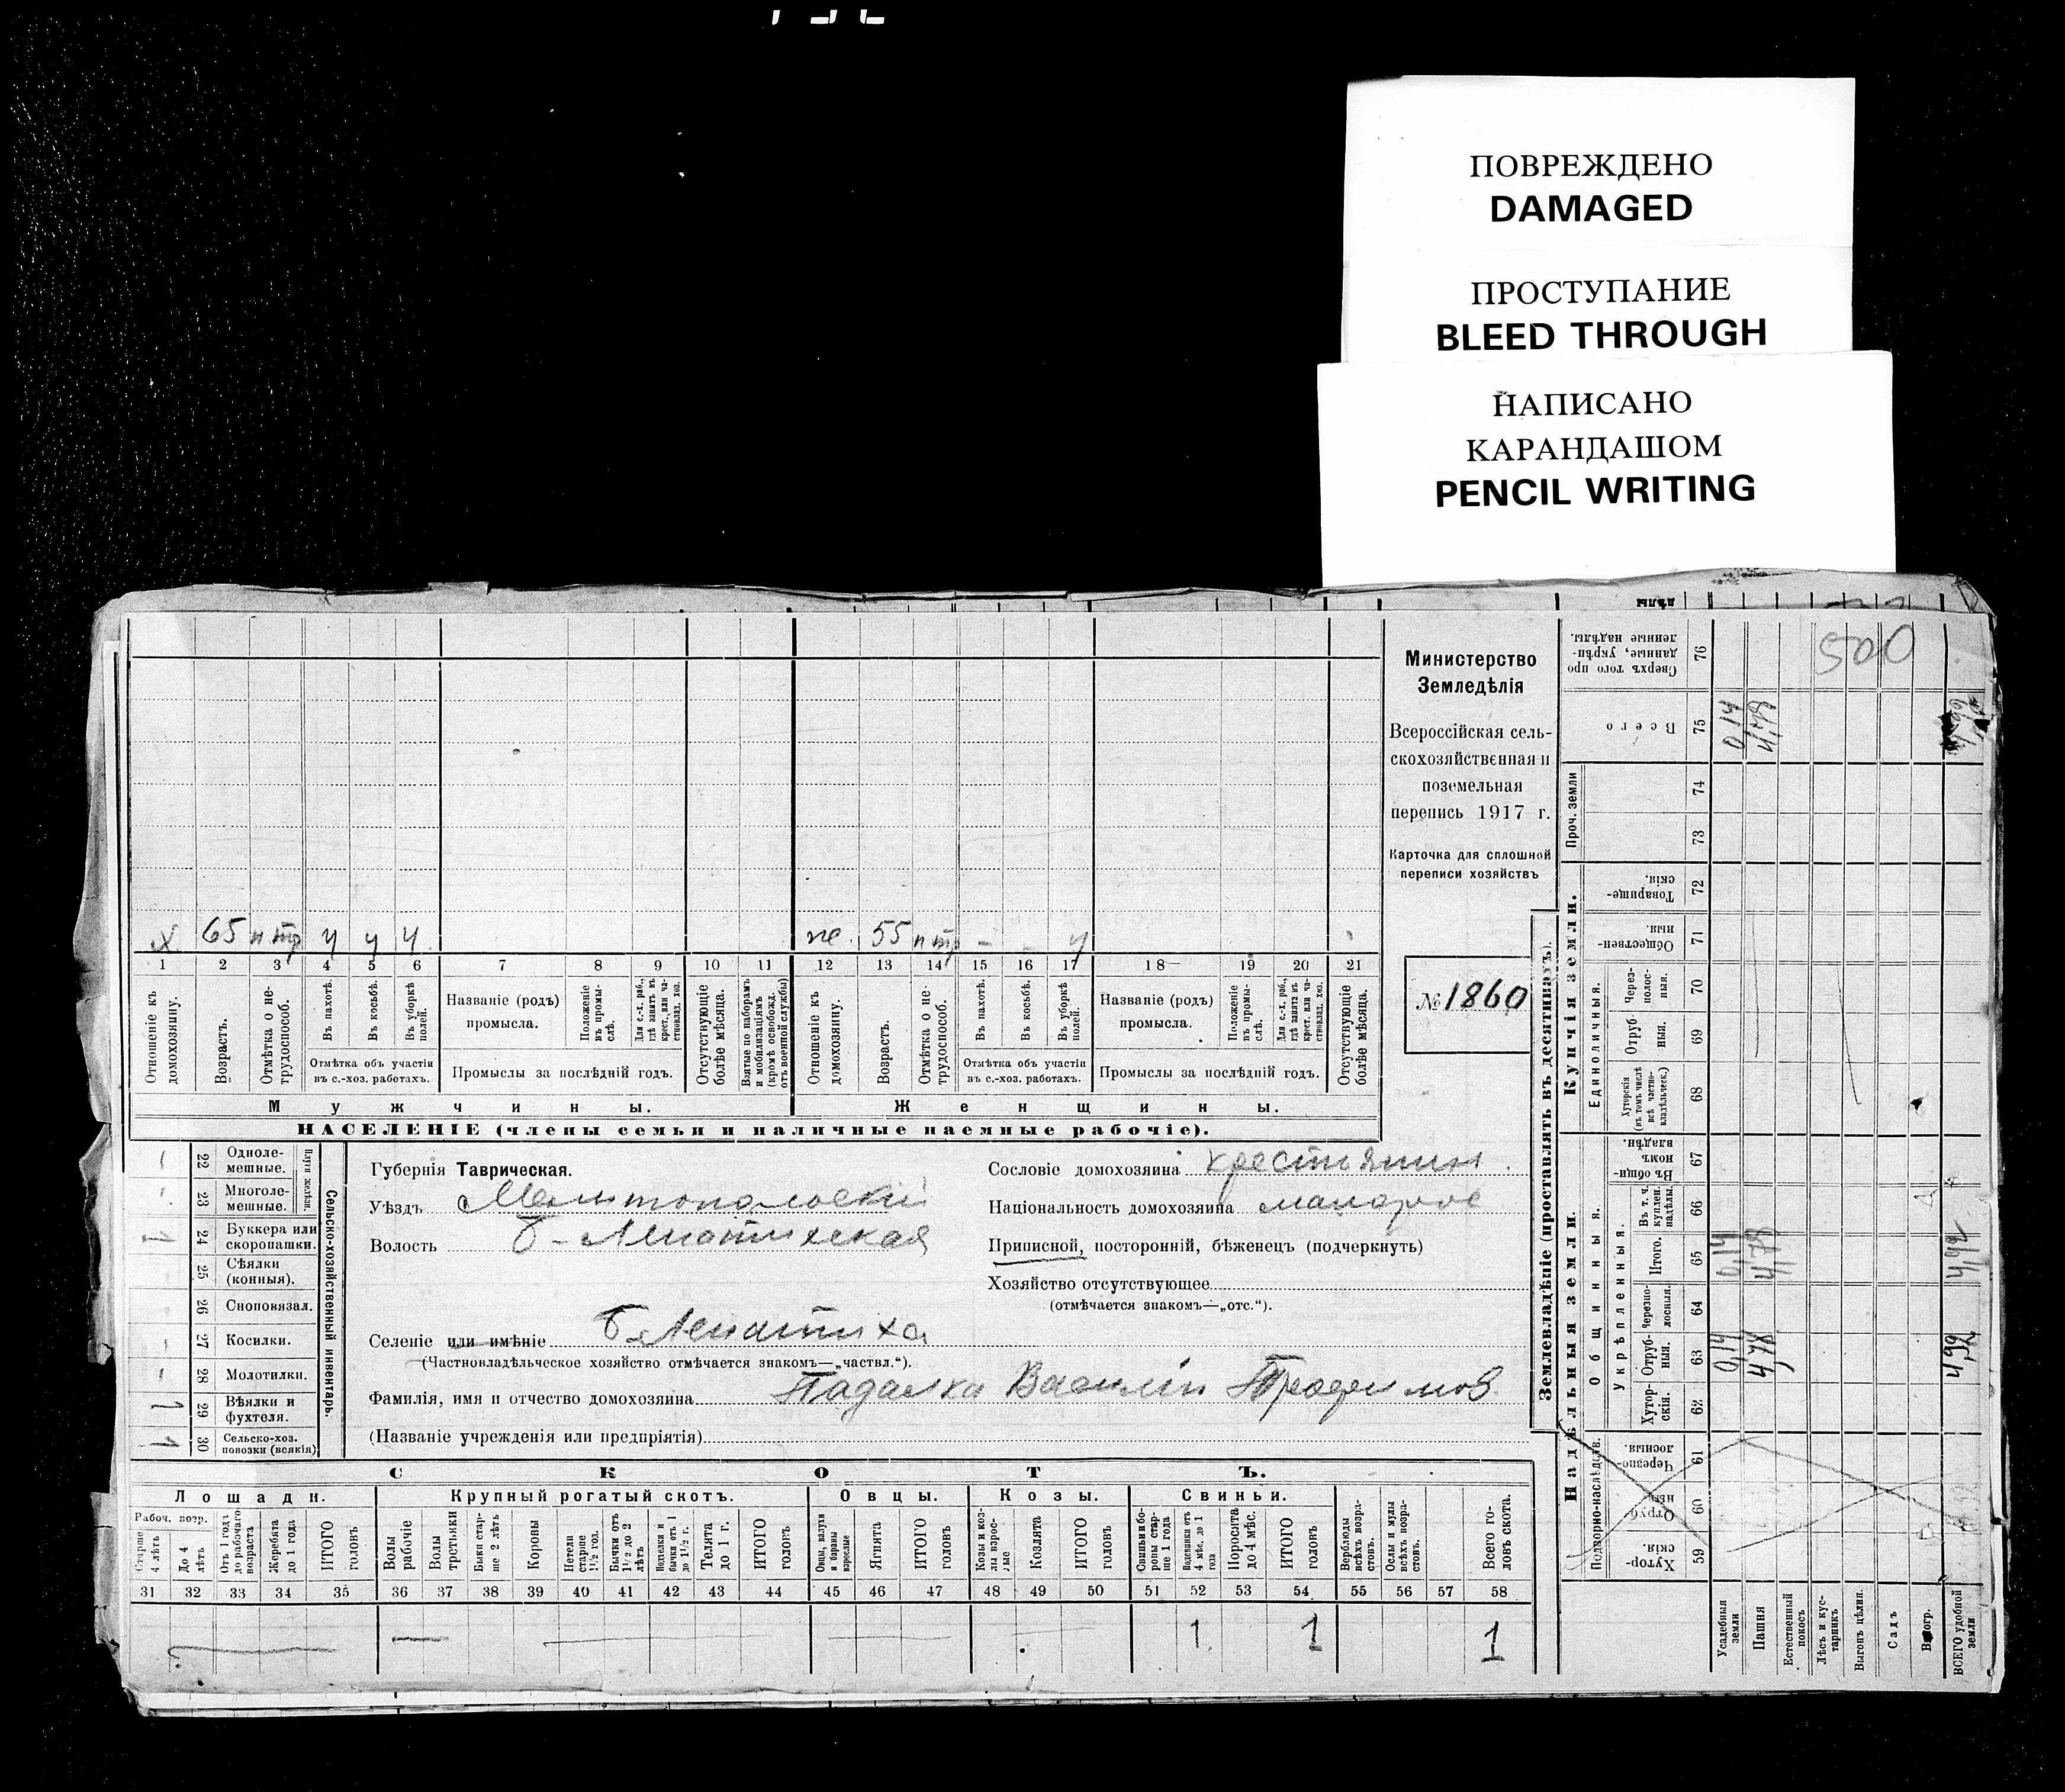 ПОВРЕЖДЕНО
DAMAGED
ПРОСТУПАНИЕ
BLEED THROUGH
НАПИСАНО
КАРАНДАШОМ
PENCIL WRITING
500
Министерство
Земледѣлія
Всероссійская сель-
скохозяйственная и
поземельная
перепись 1917 г.
Карточка для сплошной
переписи хозяйствъ
№ 1860
х 65 н тр ч ч ч
же. 55 н тр - - ч
1 2 3 4 5 6 7 8 9 10 11 12 13 14 15 16 17 18 19 20 21
Отношеніе къ домохозяину.
Возрастъ.
Отмѣтка о не-трудоспособ.
Въ пахотѣ.
Въ косьбѣ.
Въ уборкѣ полей.
Отмѣтка объ участіи
въ с.-хоз. работахъ.
Названіе (родъ)
промысла.
Положеніе въ промы-слѣ.
Промыслы за послѣдній годъ.
Отсутствующіе болѣе мѣсяца.
Взятые по наборамъ и мобилизаціямъ (кромѣ освобожд. отъ военной службы)
Отношеніе къ домохозяину.
Возрастъ.
Отмѣтка о не-трудоспособ.
Въ пахотѣ.
Въ косьбѣ.
Въ уборкѣ полей.
Отмѣтка объ участіи
въ с.-хоз. работахъ.
Названіе (родъ)
промысла.
Положеніе въ промы-слѣ.
Промыслы за послѣдній годъ.
Отсутствующіе болѣе мѣсяца.
Мужчины. Женщины.
НАСЕЛЕНІЕ (члены семьи и наличные наемные рабочіе).
Сельско-хозяйственный инвентарь.
22 Одноле-мешные.
23 Многоле-мешные.
24 Буккера или скоропашки. 1
25 Сѣялки (конныя).
26 Сноповязал.
27 Косилки.
28 Молотилки.
29 Вѣялки и фухтеля. 1
30 Сельско-хоз. повозки (всякія) 1
Губернія Таврическая.
Уѣздъ Мелитопольскій
Волость Б-Лепатихская
Селеніе или имѣніе Б-Лепатиха
(Частновладѣльческое хозяйство отмѣчается знакомъ—„частвл.“).
Фамилія, имя и отчество домохозяина Падалка Василій Трофимов
(Названіе учрежденія или предпріятія)
Сословіе домохозяина крестьянин
Національность домохозяина малорос
Приписной, посторонній, бѣженецъ (подчеркнуть)
Хозяйство отсутствующее
(отмѣчается знакомъ—„отс.“).
СКОТЪ.
Лошади. Крупный рогатый скотъ. Овцы. Козы. Свиньи.
Рабоч. возр.
Старше 4 лѣтъ
До 4 лѣтъ
Отъ 1 года до рабочаго возраста
Жеребята до 1 года
ИТОГО головъ
Волы рабочіе
Волы третьяки
Быки стар-ше 2 лѣтъ
Коровы
Нетели старше 1½ год.
Бычки отъ 1½ до 2 лѣтъ
Телята до 1 г.
ИТОГО головъ
Ягнята
ИТОГО головъ
Козлята
ИТОГО головъ
Поросята до 4 мѣс.
ИТОГО головъ
Верблюды всѣхъ возра-стовъ.
Ослы и мулы всѣхъ возра-стовъ.
Всего го-ловъ скота.
31 32 33 34 35 36 37 38 39 40 41 42 43 44 45 46 47 48 49 50 51 52 53 54 55 56 57 58
1 1 1
Землевладѣніе (проставлять въ десятинахъ).
Надѣльныя земли. Купчія земли. Проч. земли
Подворно-наслѣдств.
Общинныя.
Укрѣпленныя.
Единоличныя.
59 Хутор-скія.
60 Отруб-ныя
61 Черезпо-лосныя.
62 Хутор-скія.
63 Отруб-ныя. 0,14 4,78 4,92
64 Черезпо-лосныя.
65 Итого. 0,14 4,78 4,92
66 Въ т. ч. куплен. надѣлы.
67 Въ общин-номъ владѣн.
68 Хуторскія (въ томъ числѣ всѣ частно-владѣльческ.)
69 Отруб-ныя.
70 Через-полос-ныя.
71 Обществен-ныя.
72 Товарище-скія.
73
74
75 Всего 0,14 4,78
76 Сверхъ того про-данные, укрѣп-ленные надѣлы.
Усадебныя земли
Пашня
Естественный покосъ
Лѣсъ и кус-тарникъ
Выгонъ цѣлин.
Садъ
ВСЕГО удобной земли